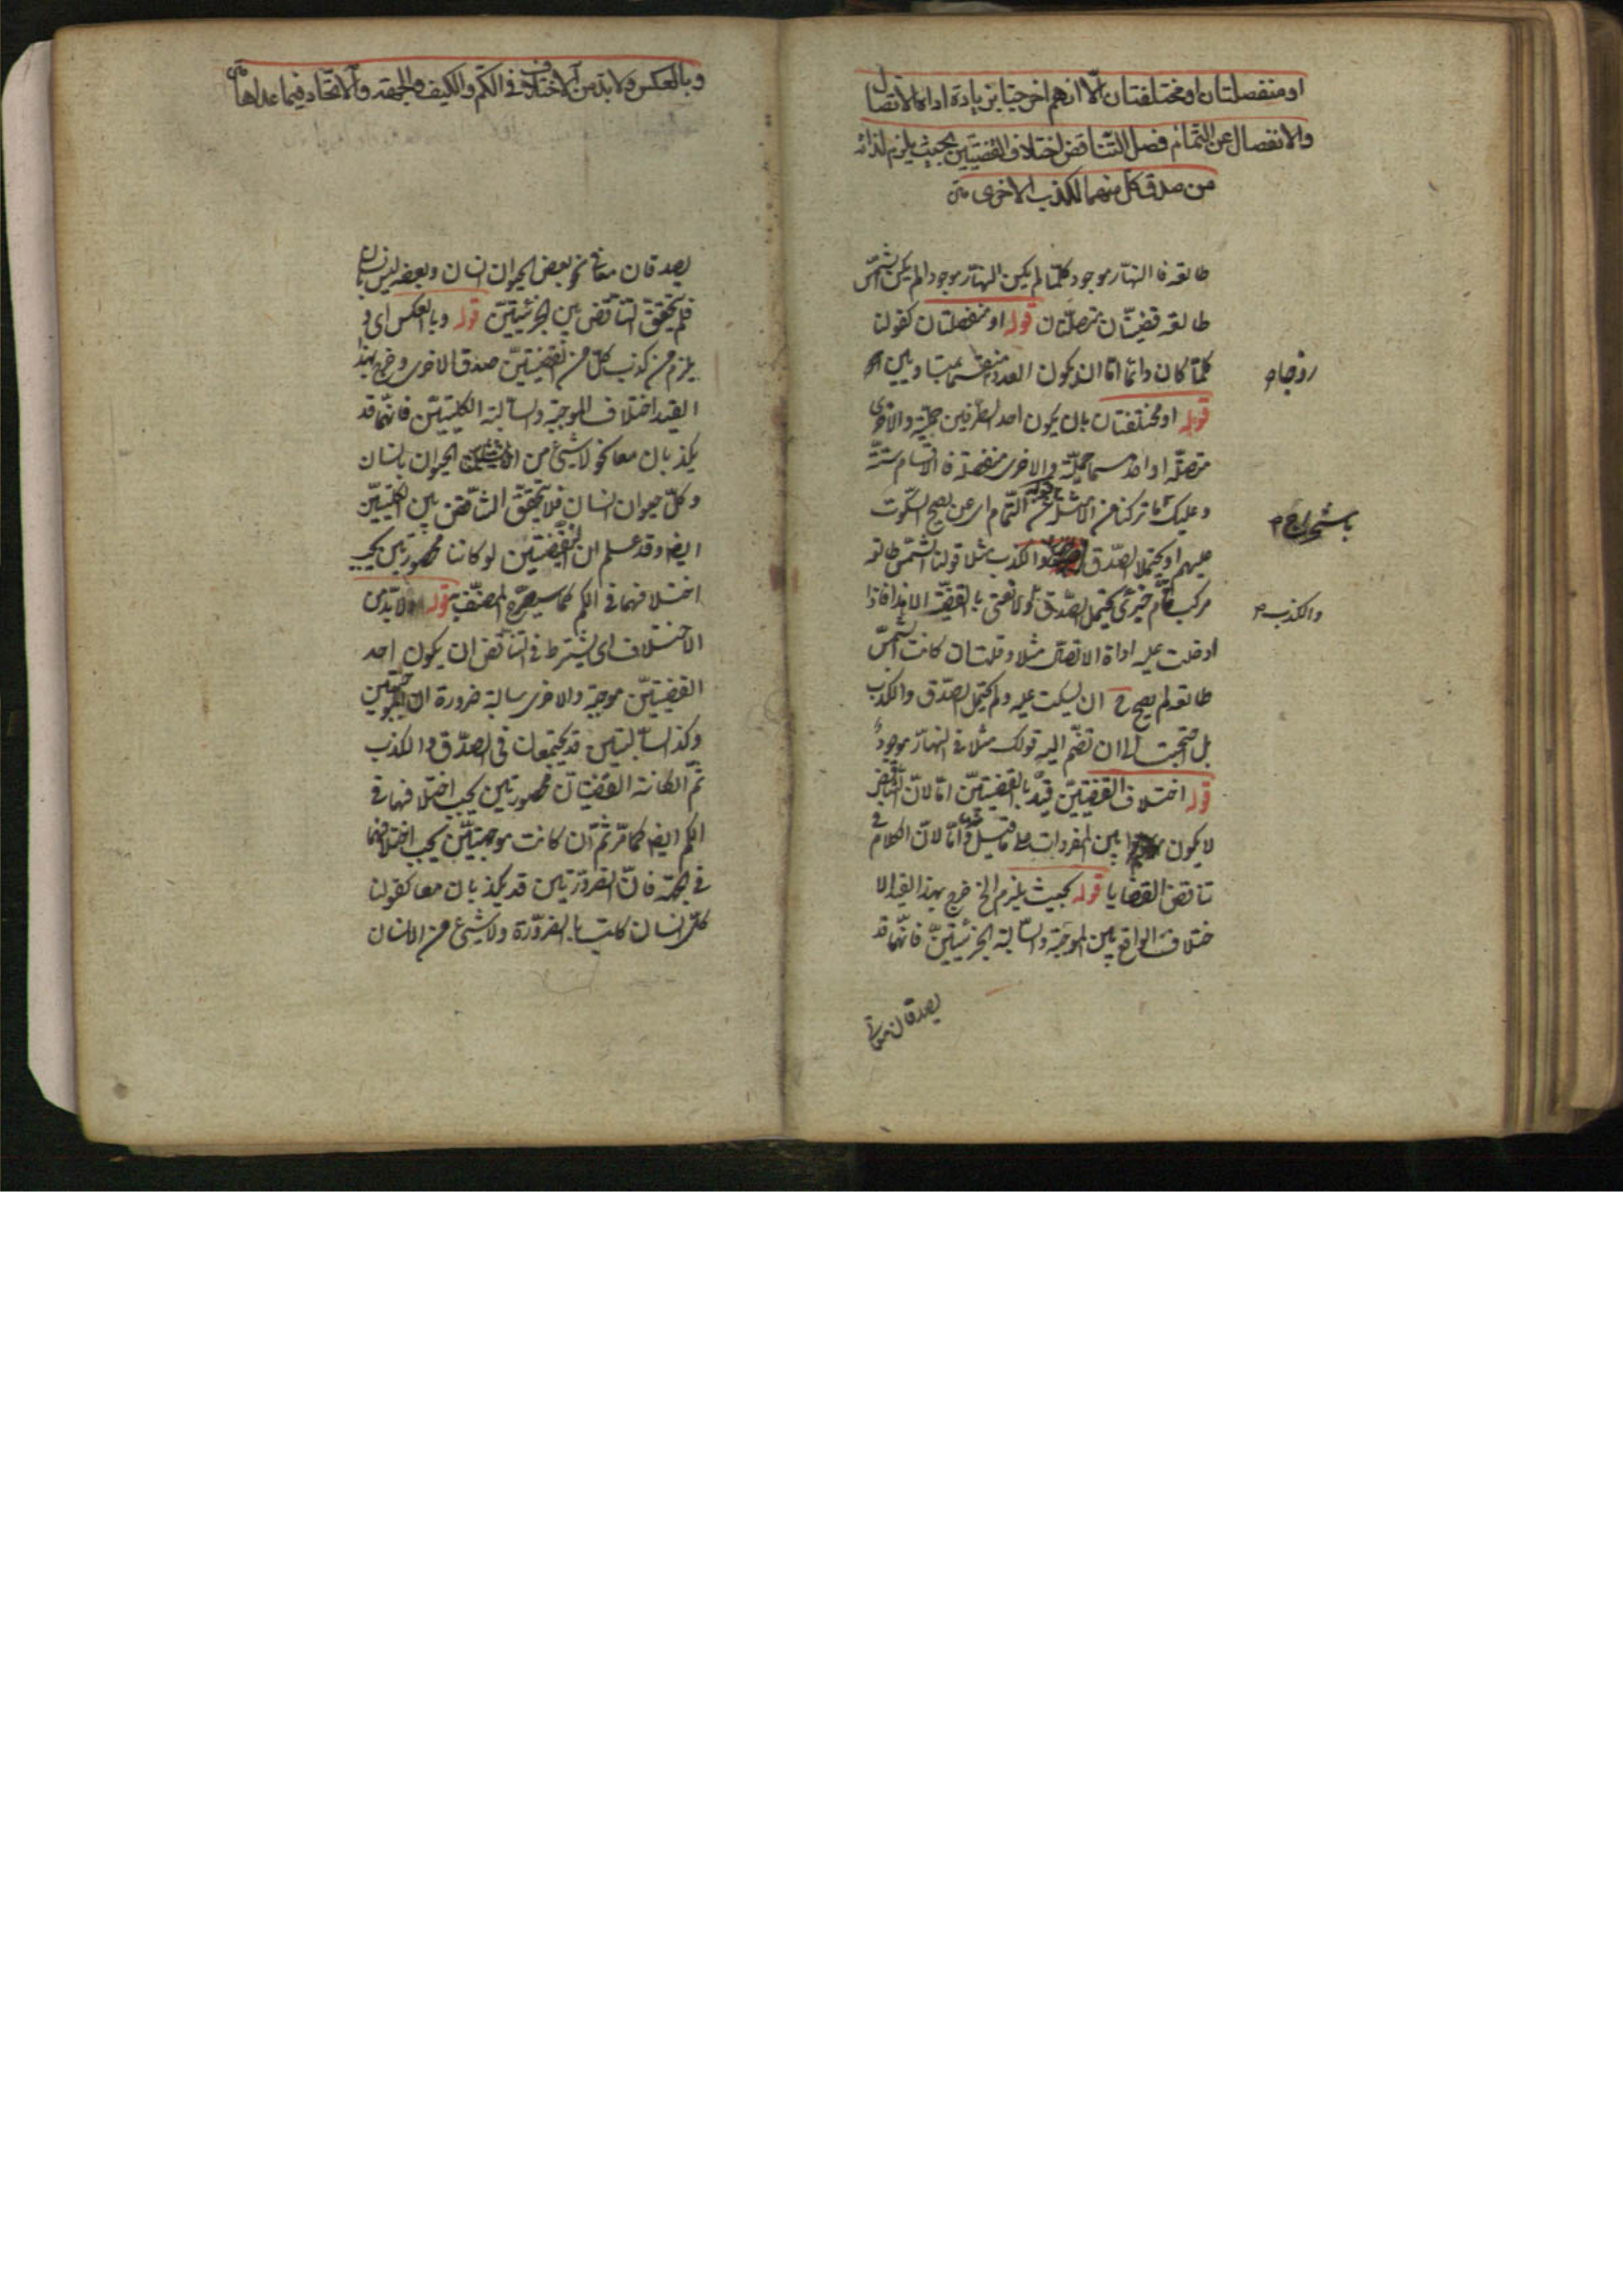 او منفصلتان او مختلفتان الّا انهم اخرجتا بزيادة اداة الاتصال
والانفصال عن التمام فصل التناقض اختلاف القضيتين بحيث يلزم لذاته
من صدق كل منهما لكذب الاخرى
طالعه فا النهار موجود كلما لم يكن النهار موجودا لم يكن الشمس
طالعه قضيتان متصلتان قوله او منفصلتان كقولنا
كلما كان دائما اما ان يكون العدد منقسما بمتساويين
زوجا م
قوله او مختلفتان بان يكون احد الطرفين حملية والاخرى
متصلة او احدهما حملية والاخرى منفصلة فالاقسام ستة
وعليك ما تركنا من الامثلة قوله عن التمام اى عن يصح السكوت
باستخراج م
عليهم او يحتملا الصدق والكذب مثلا قولنا الشمس طالعه
مركب تام خبرى يحتمل الصدق ولا نعنى بالقضية الا هذا فاذا
والكذب م
ادخلت عليه اداة الاتصال مثلا وقلت ان كانت الشمس
طالعه لم يصح ح ان يسكت عليه ولم يحتمل الصدق والكذب
بل احتجت الى ان تضم اليه قولك مثلا فى النهار موجود
قوله اختلاف القضيتين قيد بالقضيتين اما لان التناقض
لا يكون بين المفردات على ما قيل واما لان الكلام فى
تناقض القضايا قوله بحيث يلزم الخ خرج بهذا القيد الا
ختلاف الواقع بين الموجبة والسالبة الجزئيتين فانهما قد
يصدقان معا
وبالعكس ولا بد من الاختلاف فى الكم والكيف والجهة والاتحاد فيما عداها
يصدقان معا نحو بعض الحيوان انسان وبعضه ليس بانسان
فلم يتحقق التناقض بين الجزئيتين قوله وبالعكس اى و
يلزم من كذب كل من القضيتين صدق الاخرى وخرج بهذا
القيد اختلاف الموجبة والسالبة الكليتين فانهما قد
يكذبان معا نحو لا شئ من الحيوان بانسان
وكل حيوان انسان فلا يتحقق التناقض بين الكليتين
ايضا وقد علم ان القضيتين لو كانتا محصورتين يجب
اختلافهما فى الكم كما سيصرح المصنف قوله ولا بد من
الاختلاف اى يشترط فى التناقض ان يكون احد
القضيتين موجبة والاخرى سالبة ضرورة ان الموجبتين
وكذا السالبتين قد يجتمعان فى الصدق والكذب
ثم ان كانت القضيتان محصورتين يجب اختلافهما فى
الكم ايضا كما مر ثم ان كانت موجهتين يجب اختلافهما
فى الجهة فان الضرورتين قد يكذبان معا كقولنا
كل انسان كاتب بالضرورة ولا شئ من الانسان